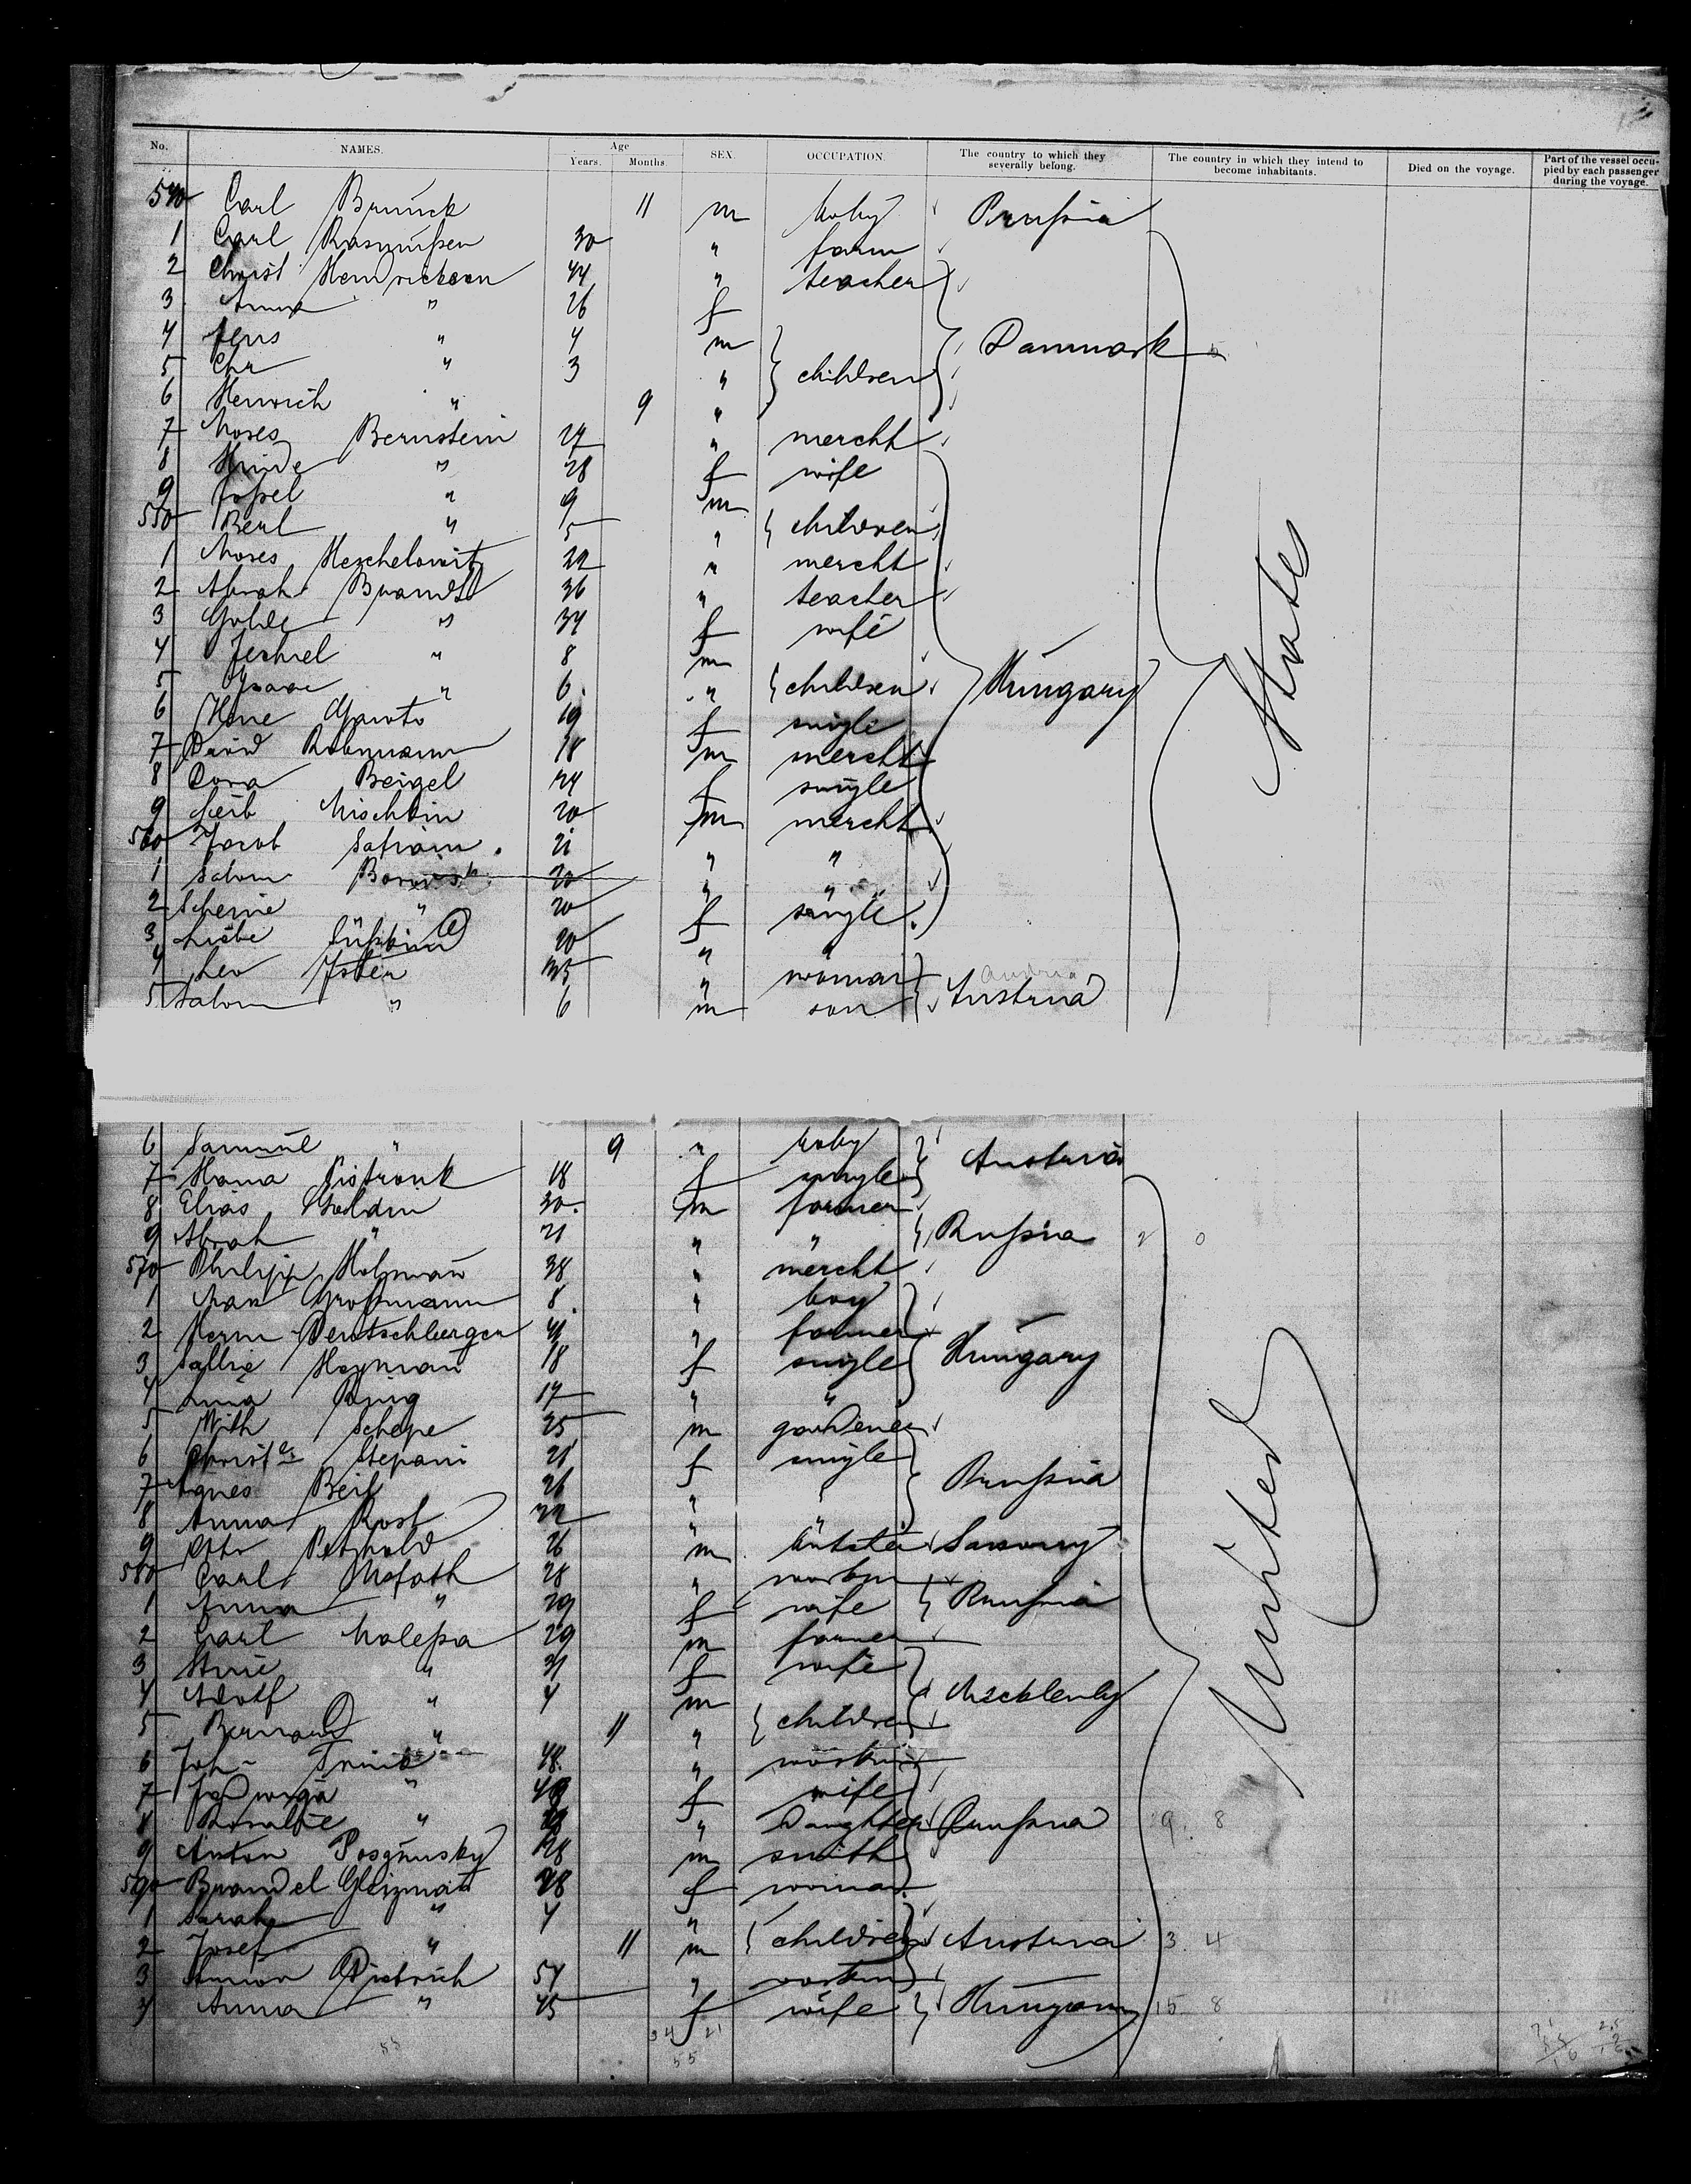 No. NAMES. Age Years. Months. SEX. OCCUPATION. The country to which they severally belong. The country in which they intend to become inhabitants. Died on the voyage. Part of the vessel occupied by each passenger during the voyage.
540 Carl Brunck 11 m baby Prussia
1 Carl Rasmussen 30 " farm
2 Christ Hendricksen 44 " teacher
3 Anna " 26 f
4 Jens " 4 m Danmark
5 Chr " 3 " children
6 Henrich " 9 "
7 Moses Bernstein 27 " mercht
8 Hinde " 28 f wife
9 Jossel " 9 m
550 Berl " 5 " children
1 Moses Herschelowitz 22 " mercht
2 Abrah Brandt 36 " teacher
3 Golde " 34 f wife
4 Jechiel " 8 m
5 " 6 " children Hungary States
6 19 f single
7 David 18 m mercht
8 Dora Beigel 24 f single
9 Leib Mischkin 20 m mercht
560 Jacob Safrain 21 " "
1 Salom 20 " "
2 Scherie " 20 f single
3 Liebe 20 " "
4 Lea 35 " woman
5 Salom " 6 m son Austria
6 Samuel " 9 " baby Austria
7 Hana Pistronk 18 f single
8 Elias Goldin 30 m farmer
9 Abrah " 21 " " Russia
570 Philipp Holman 38 " mercht
1 Max Grossmann 8 " boy
2 Herm Deutschberger 41 " farmer
3 Sallie Heyman 18 f single Hungary
4 Lina 17 " "
5 Wilh Schepe 25 m gardener
6 Christe Stepani 21 f single
7 Agnes Beil 26 " " Prussia
8 Anna Rost 22 " "
9 Otto Petzhold 26 m
580 Carl 28 "
1 Anna " 29 f wife Prussia
2 Carl Malessa 29 m farmer
3 " 31 f wife
4 Adolf " 4 m Mecklenbg
5 Bernard " 11 " children United
6 Joh 48 "
7 Jadwiga " f wife
8 Rosalie " " Daughter Prussia 9. 8
9 Anton 28 m smith
590 Brandel Gleizman 28 f woman
1 Sarah " 4 "
2 Josef " 11 m children Austria 3. 4
3 Dietrich 54 "
4 Anna " 45 f wife Hungary 15 8
34 21
55